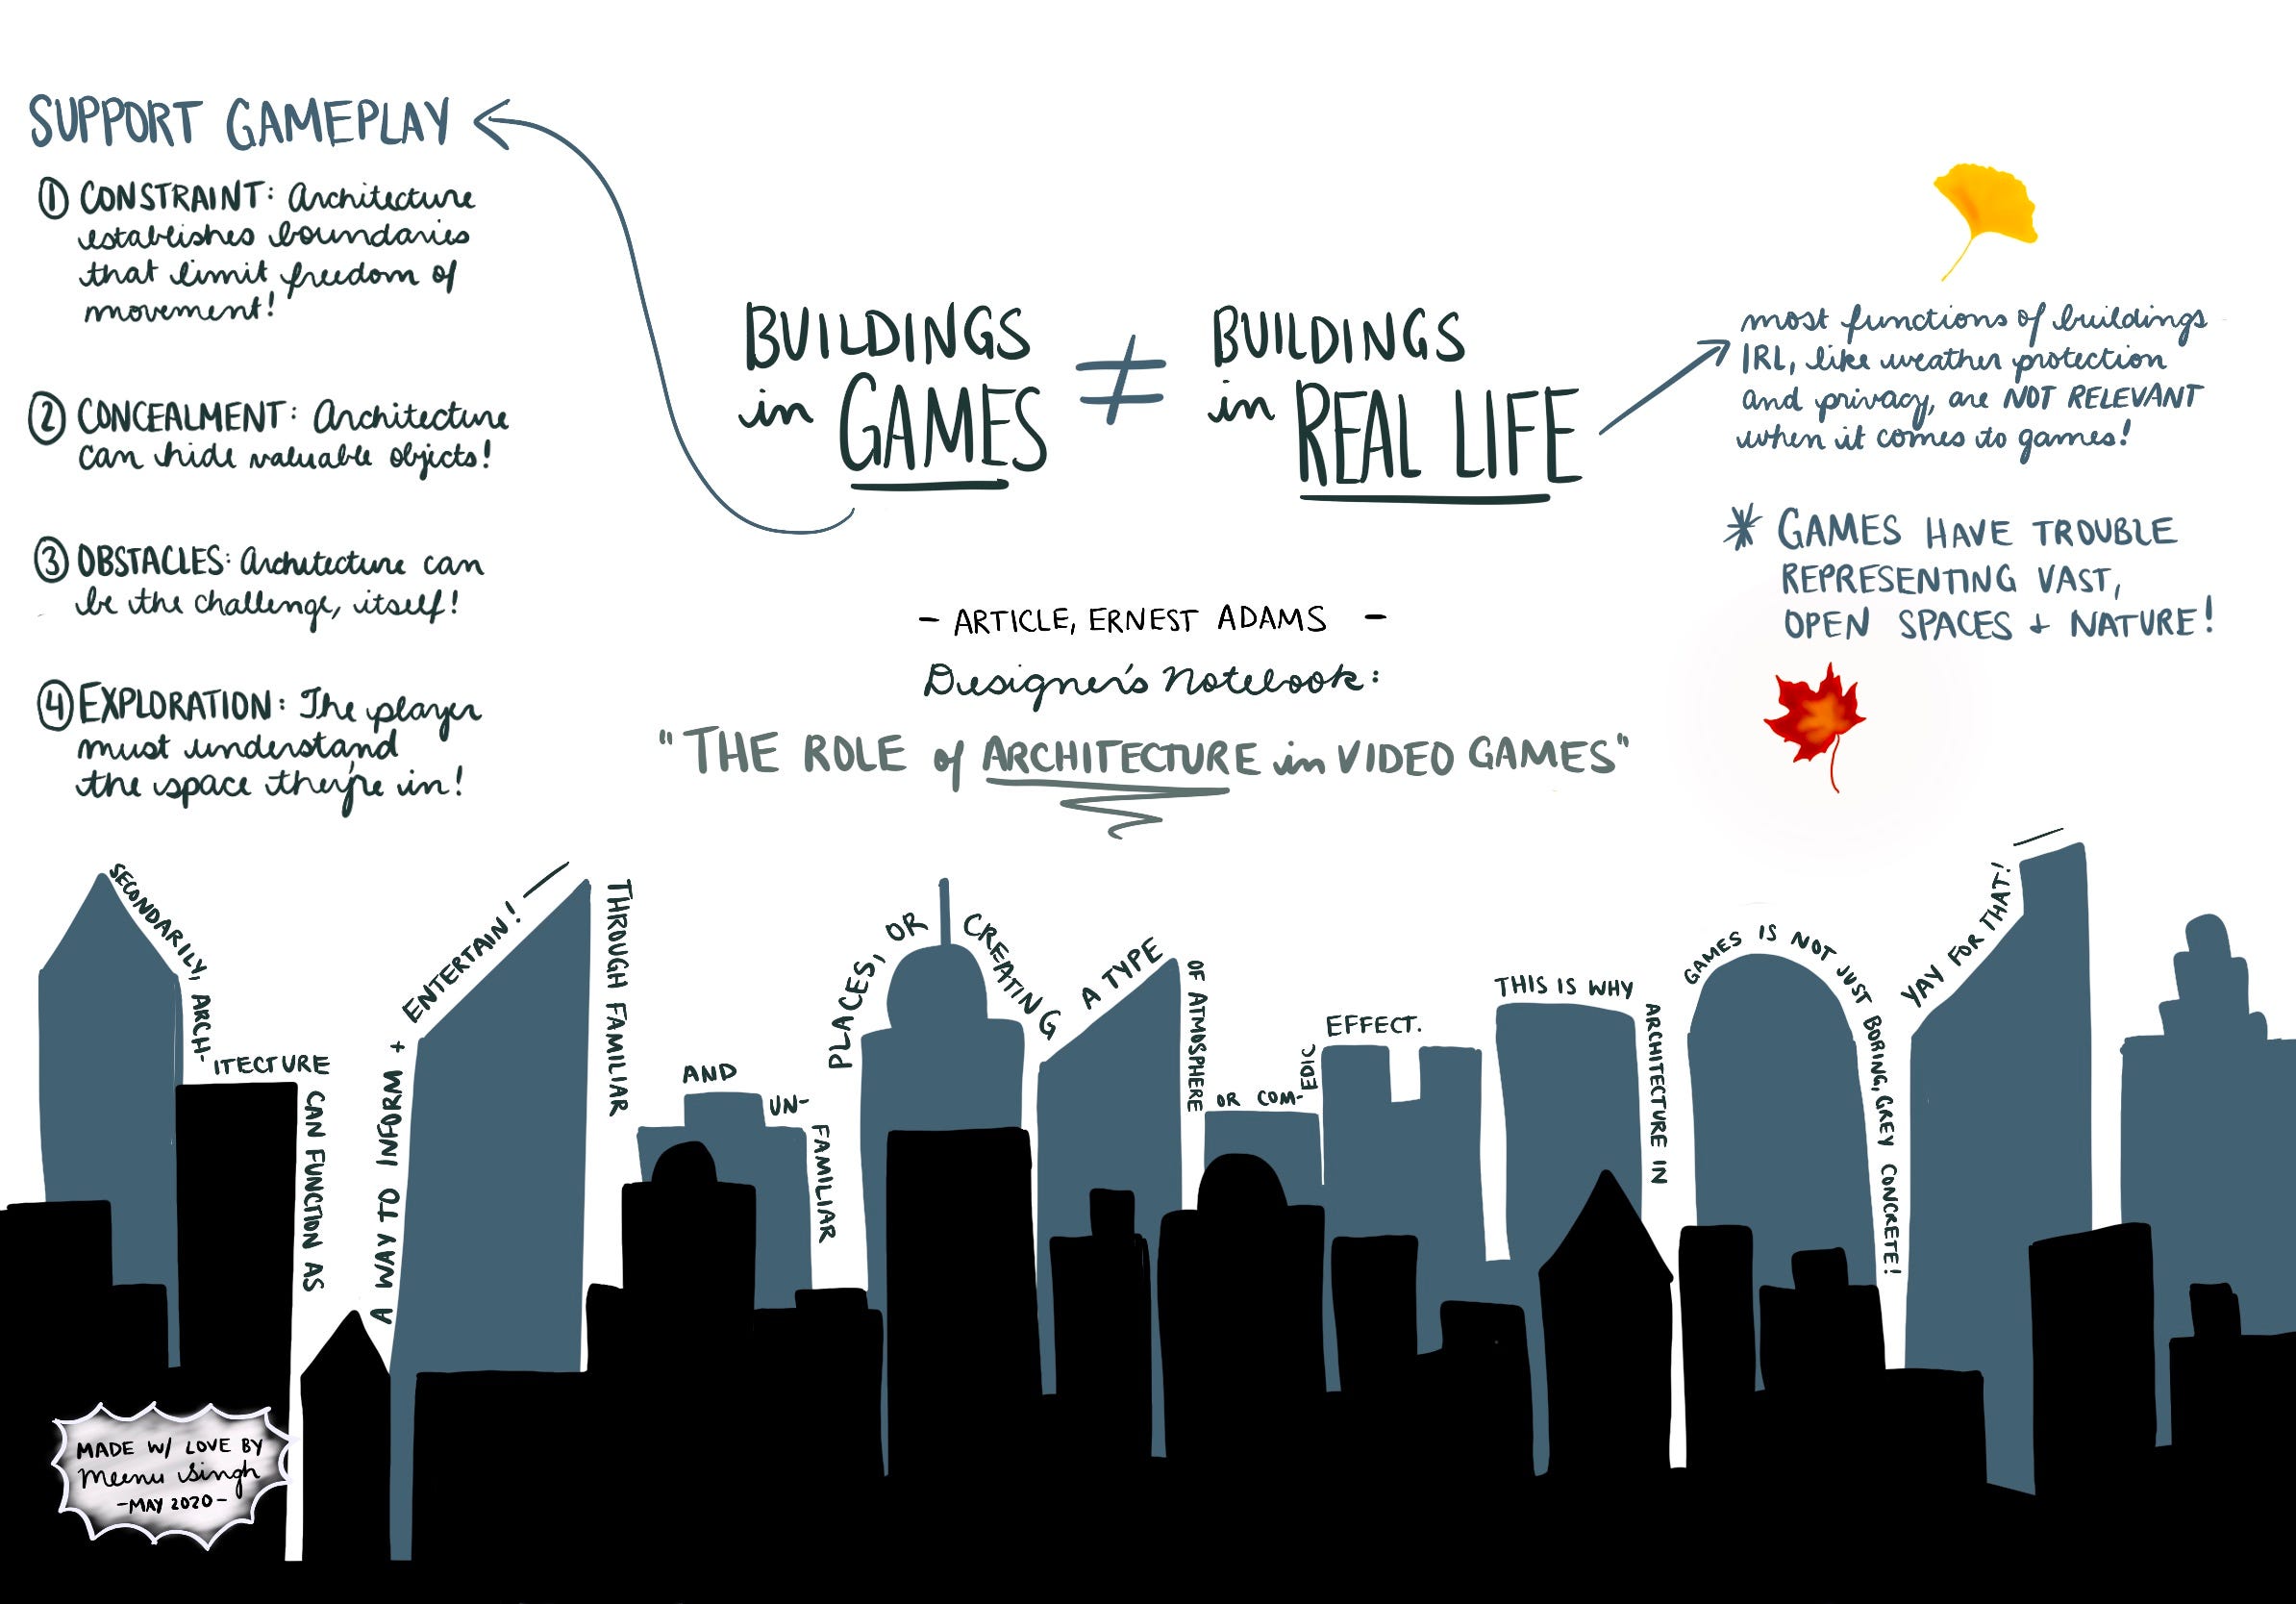 SUPPORT GAMEPLAY
① CONSTRAINT: Architecture
establishes boundaries
that limit freedom of
movement!
② CONCEALMENT: Architecture
can hide valuable objects!
③ OBSTACLES: Architecture can
be the challenge, itself!
④ EXPLORATION: The player
must understand
the space they're in!
BUILDINGS
in GAMES
≠
BUILDINGS
in REAL LIFE
most functions of buildings
IRL, like weather protection
and privacy, are NOT RELEVANT
when it comes to games!
* GAMES HAVE TROUBLE
REPRESENTING VAST,
OPEN SPACES + NATURE!
- ARTICLE, ERNEST ADAMS -
Designer's Notebook:
"THE ROLE of ARCHITECTURE in VIDEO GAMES"
SECONDARILY, ARCH-
ITECTURE
CAN FUNCTION AS
A WAY TO INFORM +
ENTERTAIN! —
THROUGH FAMILIAR
AND
UN-
FAMILIAR
PLACES, OR
CREATING
A TYPE
OF ATMOSPHERE
OR COM-
EDIC
EFFECT.
THIS IS WHY
ARCHITECTURE IN
GAMES IS NOT JUST
BORING, GREY CONCRETE!
YAY FOR THAT! —
MADE W/ LOVE BY
Meenu Singh
-MAY 2020-